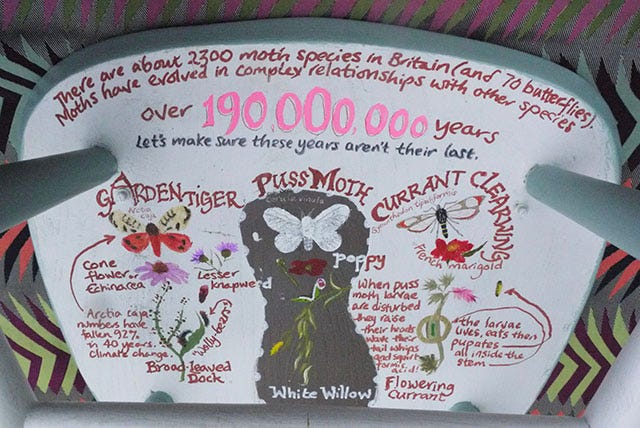 There are about 2300 moth species in Britain (and 70 butterflies).
Moths have evolved in complex relationships with other species
over 190 000,000 years
Let's make sure these years aren't their last.
GARDEN TIGER
Arctia caja
Cone
flower or
Echinacea
Lesser
Knapweed
Arctia caja
numbers have
fallen 92%
in 40 years.
Climate change.
"Woolly bears"
Broad-leaved
Dock
PUSS MOTH
Cerura vinula
Poppy
White Willow
When puss
moth larvae
are disturbed
they raise
their heads
wave their
tail whips
and squirt
formic
acid!
CURRANT CLEARWING
Synanthedon tipuliformis
French marigold
the larvae
lives, eats then
pupates
all inside the
stem
Flowering
Currant